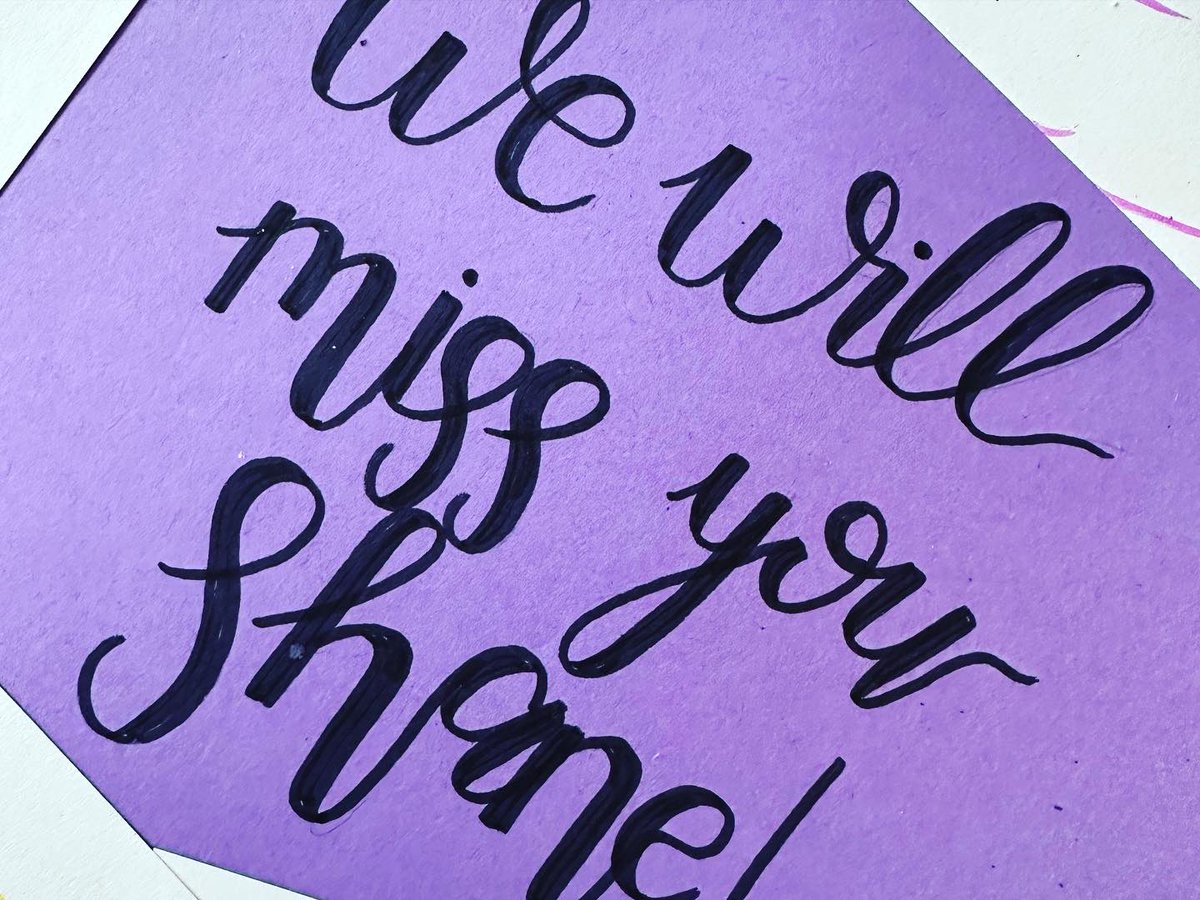 We will
miss you
Shane!